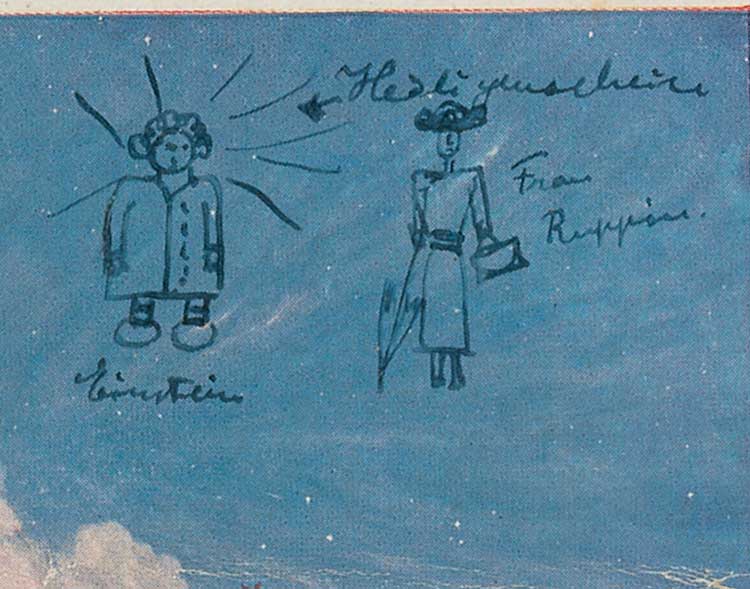 Heiligenschein
Frau
Ruppin.
Einstein